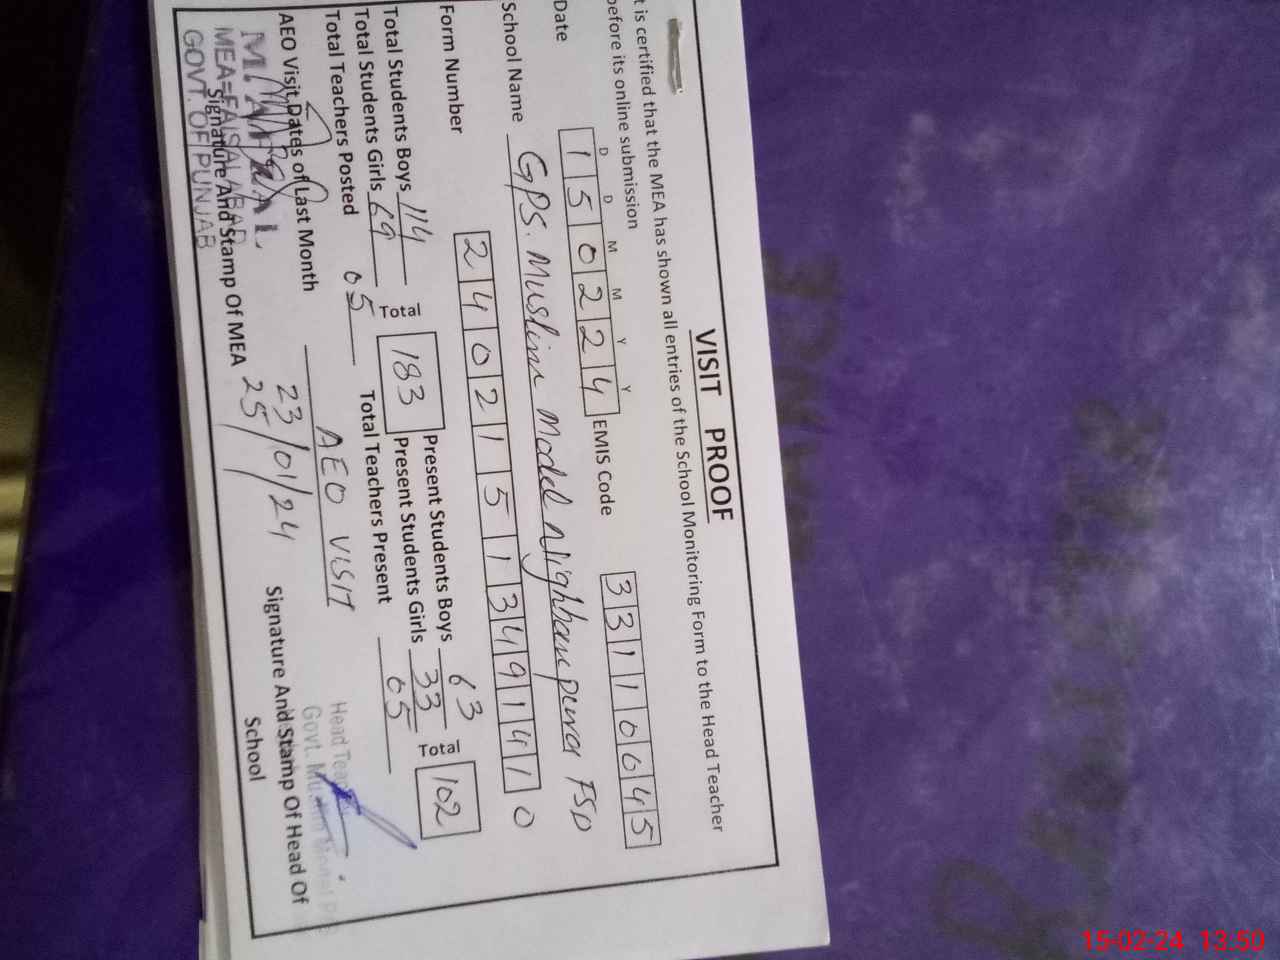 VISIT PROOF
t is certified that the MEA has shown all entries of the School Monitoring Form to the Head Teacher
before its online submission
D D M M Y Y
Date 1 5 0 2 2 4 EMIS Code 3 3 1 1 0 6 4 5
School Name GPS. Muslim Model FSD
Form Number 2 4 0 2 1 5 1 3 4 9 1 4 1 0
Total Students Boys 114 Present Students Boys 63
Total Students Girls 69 Total 183 Present Students Girls 33 Total 102
Total Teachers Posted 05 Total Teachers Present 05
AEO Visit Dates of Last Month AEO VISIT
23/01/24
25
MEA=FAISALABAD
GOVT. OF PUNJAB
Signature And Stamp Of MEA
Head Teacher
Govt. Muslim Model
Signature And Stamp Of Head Of
School
15-02-24 13:50